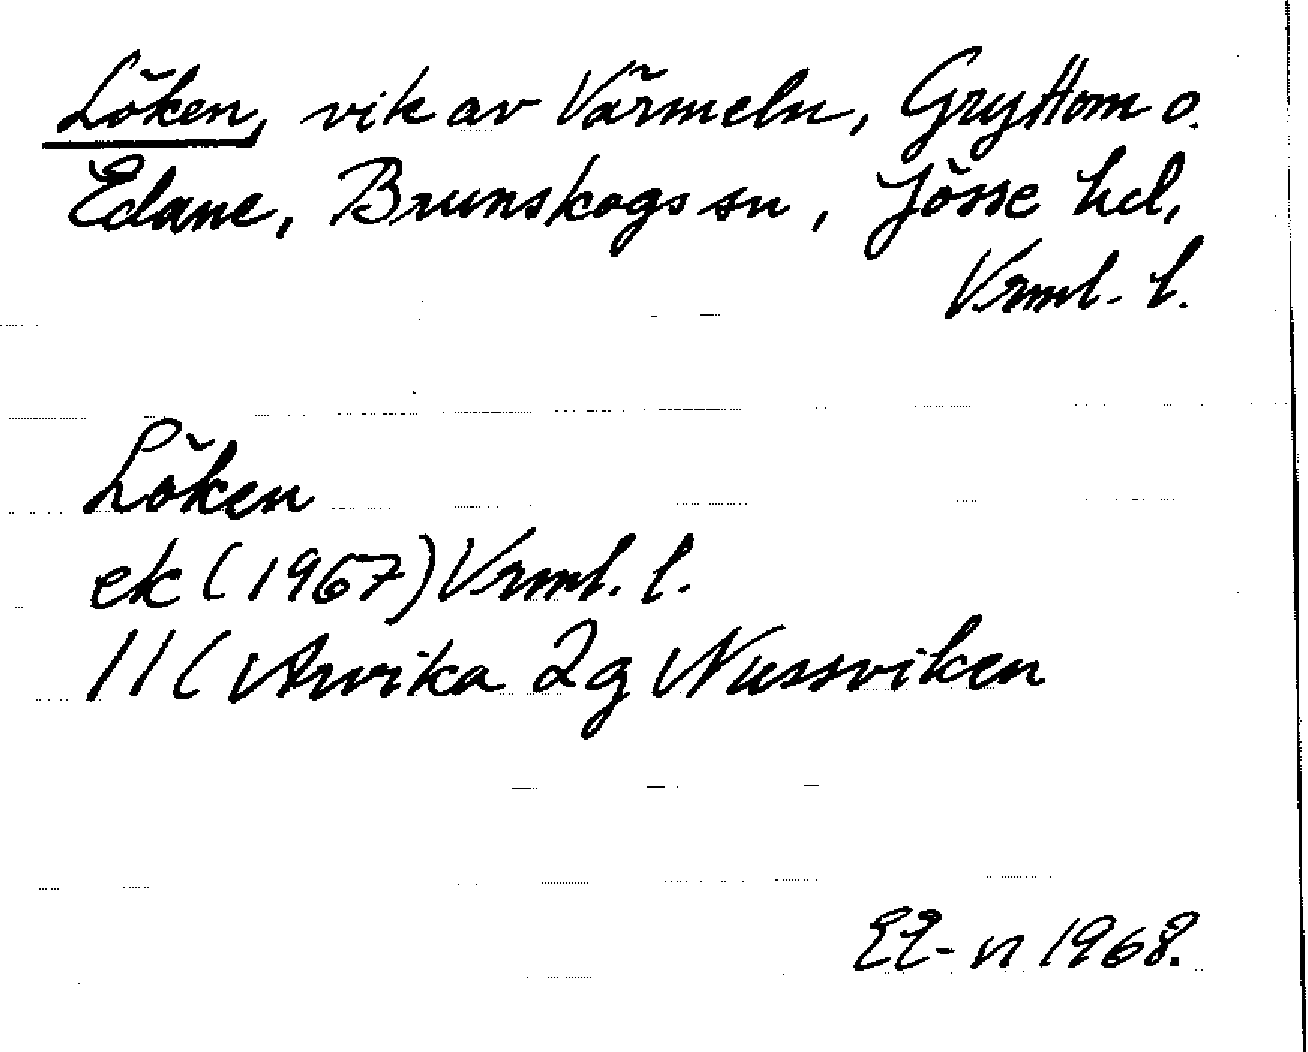 Löken, vik av Värmeln, Gryttom o.
Edane, Brunskogs sn, Jösse hd,
Vrml. l.
Löken
ek (1967) Vrml. l.
11C Arvika 2g Nussviken
1968.